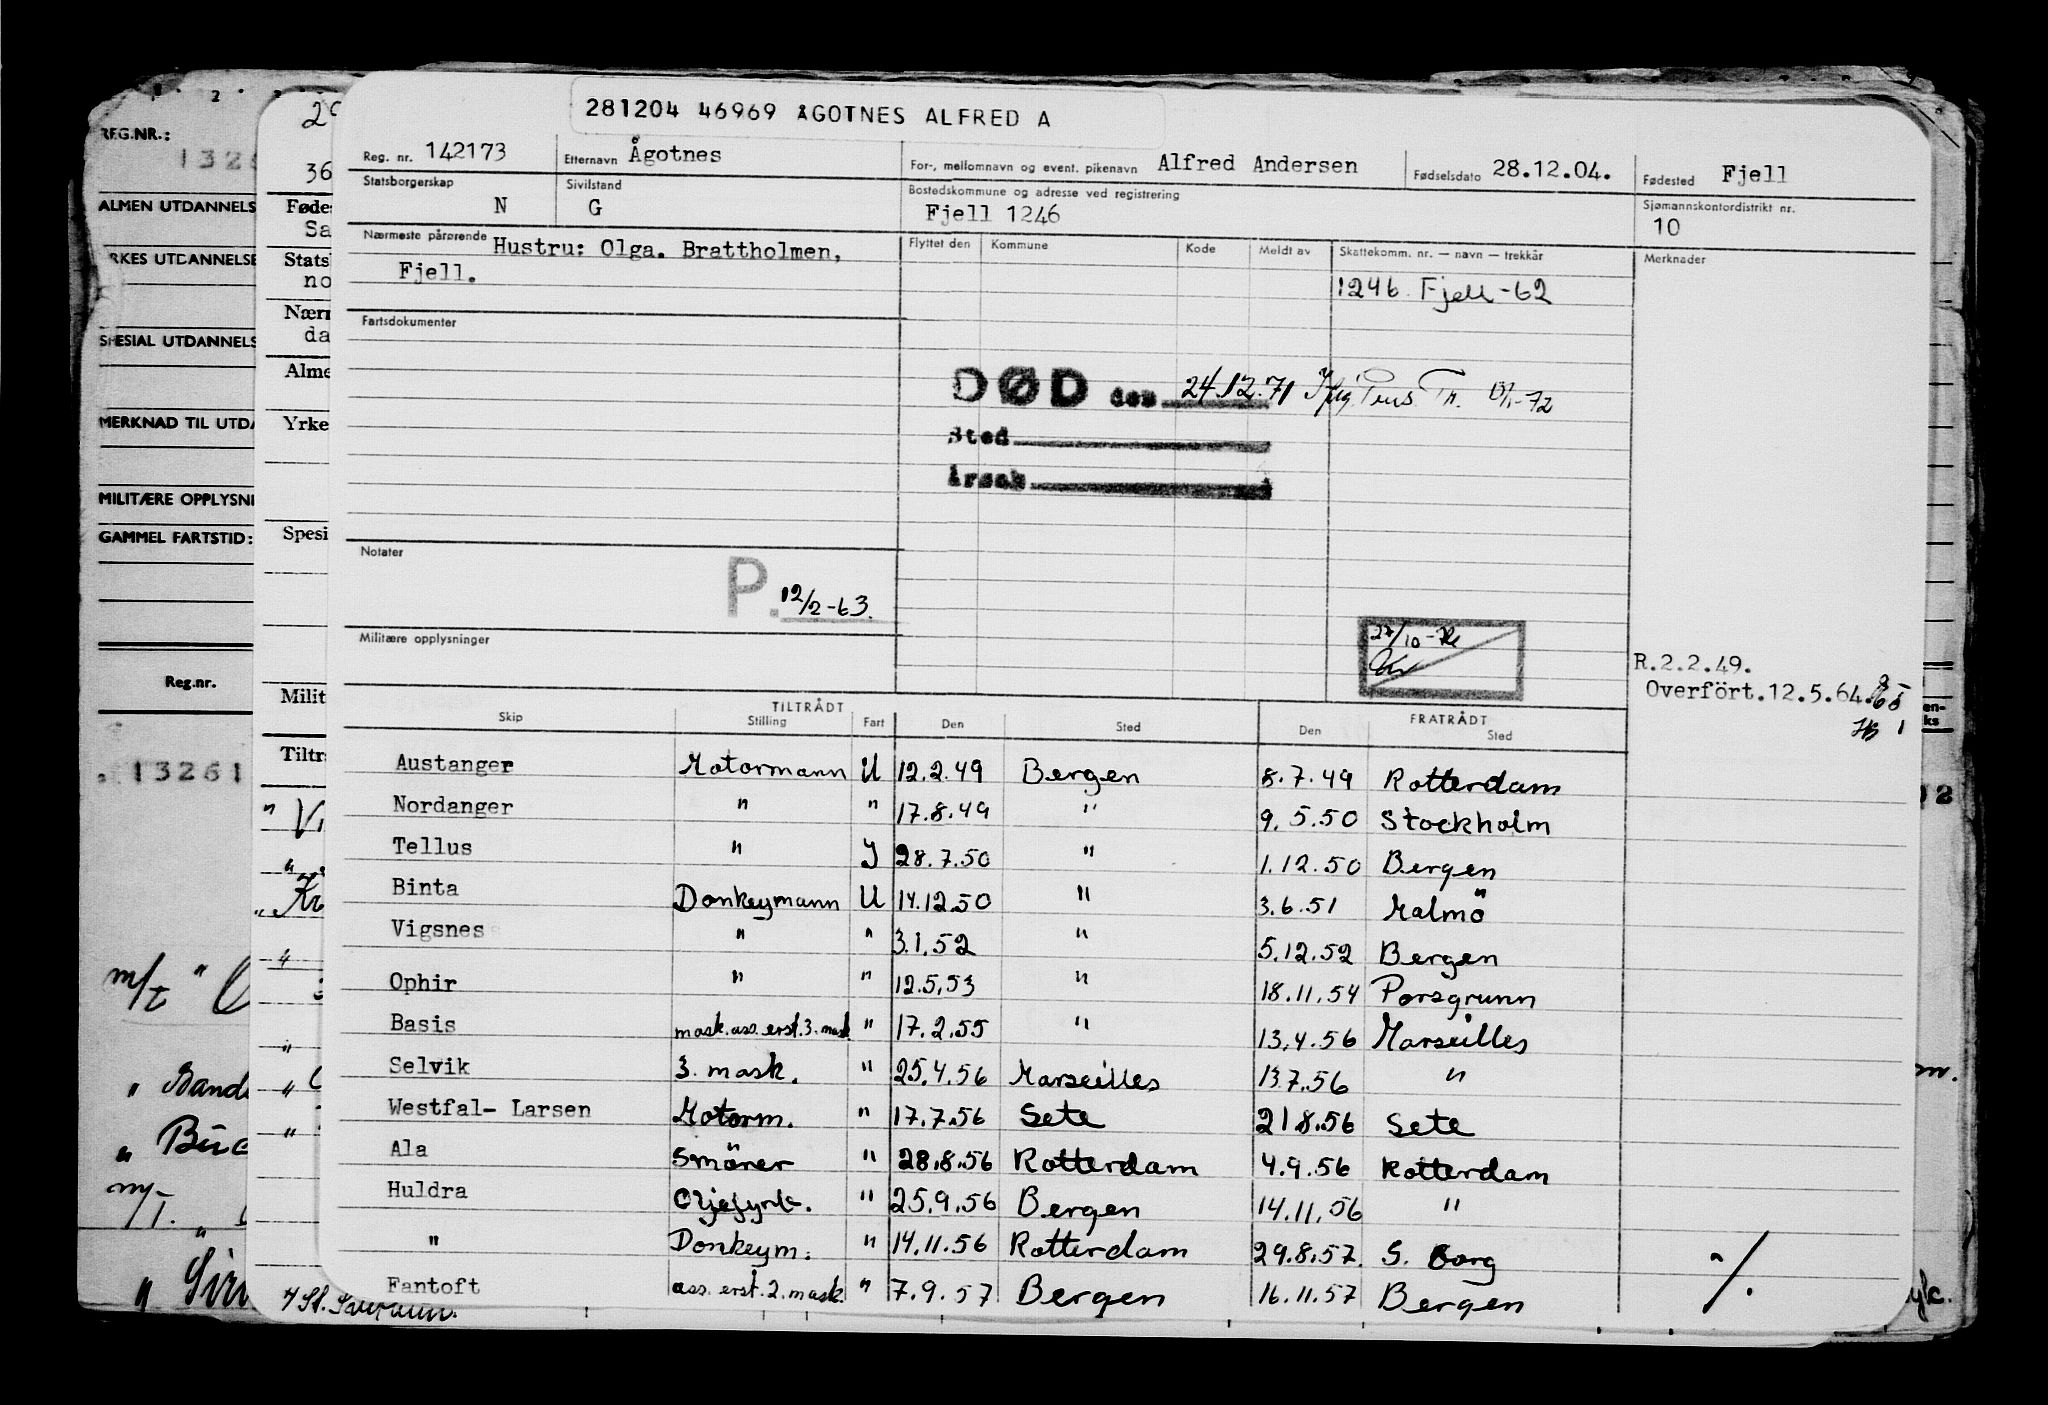 281204 46969 ÅGOTNES ALFRED A
Reg. nr. 142173 Etternavn Ågotnes For-, mellomnavn og event. pikenavn Alfred Andersen Fødselsdato 28.12.04. Fødested Fjell
Statsborgerskap N Sivilstand G Bostedskommune og adresse ved registrering Fjell 1246 Sjømannskontordistrikt nr. 10
Nærmeste pårørende Hustru: Olga. Brattholmen, Fjell.
Flyttet den Kommune Kode Meldt av Skattekomm. nr. — navn — trekkår Merknader
1246 Fjell-62
Fartsdokumenter
DØD den 24.12.71
Sted
Årsak
Notater
P. 12/2-63.
Militære opplysninger
27/10-72
R.2.2.49.
Overfört.12.5.64.
TILTRÅDT FRATRÅDT
Skip Stilling Fart Den Sted Den Sted
Austanger Motormann U 12.2.49 Bergen 8.7.49 Rotterdam
Nordanger " " 17.8.49 " 9.5.50 Stockholm
Tellus " I 28.7.50 " 1.12.50 Bergen
Binta Donkeymann U 14.12.50 " 3.6.51 Malmö
Vigsnes " " 3.1.52 " 5.12.52 Bergen
Ophir " " 12.5.53 " 18.11.54 Porsgrunn
Basis mask.ass. erst. 3. mask " 17.2.55 " 13.4.56 Marseilles
Selvik 3. mask. " 25.4.56 Marseilles 13.7.56 "
Westfal- Larsen Motorm. " 17.7.56 Sete 21.8.56 Sete
Ala Smörer " 28.8.56 Rotterdam 4.9.56 Rotterdam
Huldra Oljefyrb. " 25.9.56 Bergen 14.11.56 "
" Donkeym. " 14.11.56 Rotterdam 29.8.57. S. Borg
Fantoft ass. erst. 2. mask. " 7.9.57 Bergen 16.11.57 Bergen
REG.NR.:
ALMEN UTDANNELS
SPESIAL UTDANNELS
MERKNAD TIL UTDA
MILITÆRE OPPLYSNI
GAMMEL FARTSTID:
Reg.nr.
13261
36
Føde
Sa
Stats
no
Nærr
da
Alme
Yrke
Spesi
Milit
Tiltr